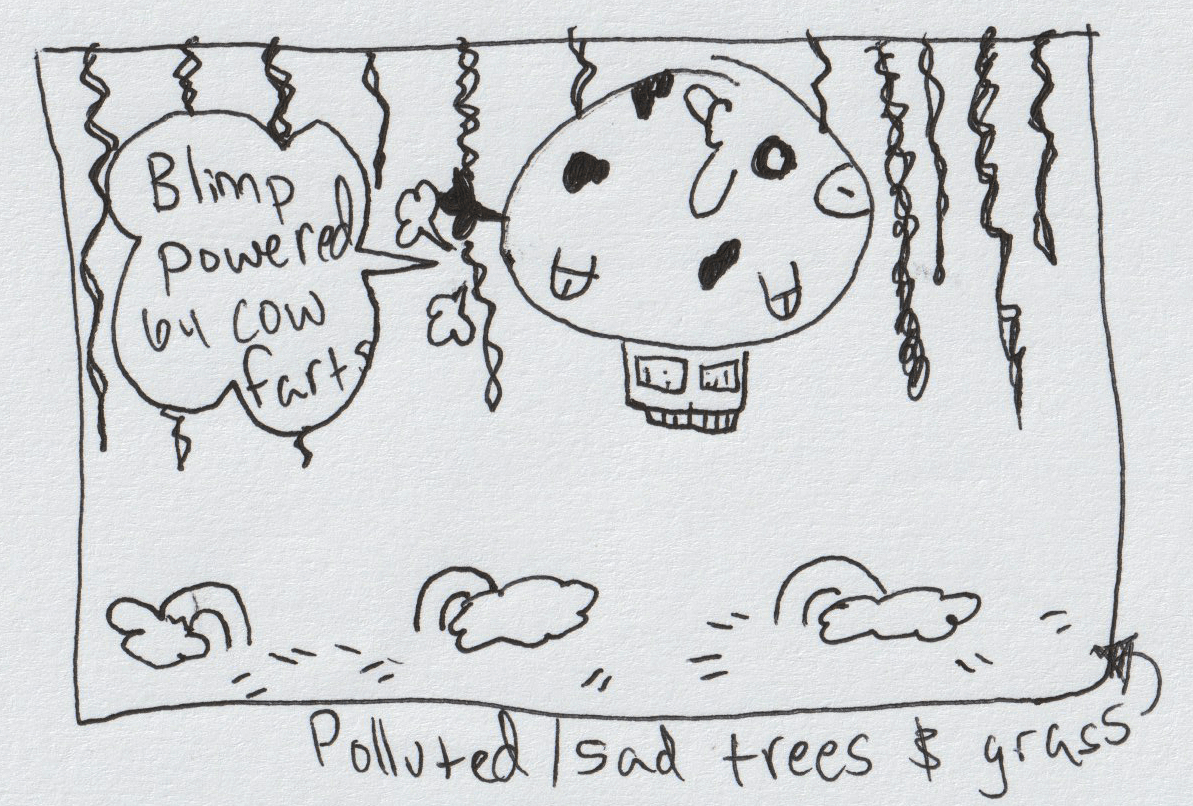 Blimp
powered
by cow
farts
Polluted/sad trees & grass